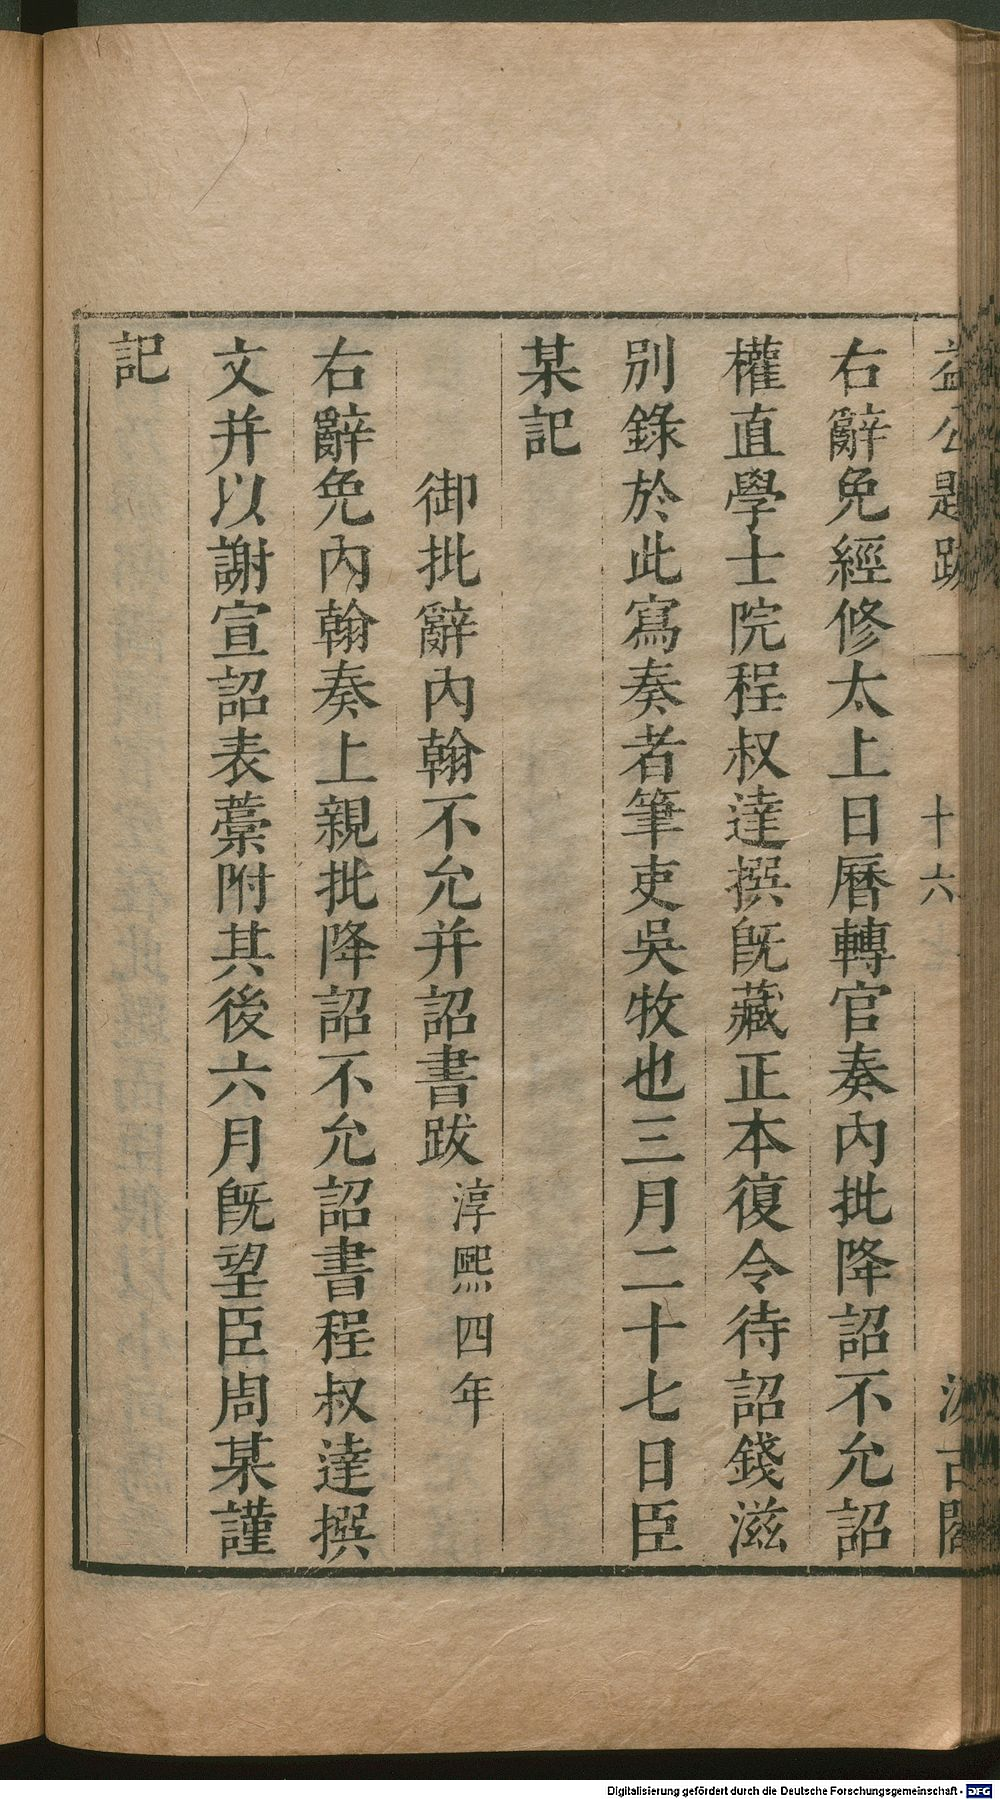 益公題跋 十六 汲古閣
右辭免經修太上日曆轉官奏內批降詔不允詔
權直學士院程叔達撰旣藏正本復令待詔錢滋
別錄於此寫奏者筆吏吳牧也三月二十七日臣
某記
御批辭內翰不允并詔書跋 淳熙四年
右辭免內翰奏上親批降詔不允詔書程叔達撰
文并以謝宣詔表藁附其後六月旣望臣周某謹
記
Digitalisierung gefördert durch die Deutsche Forschungsgemeinschaft - DFG